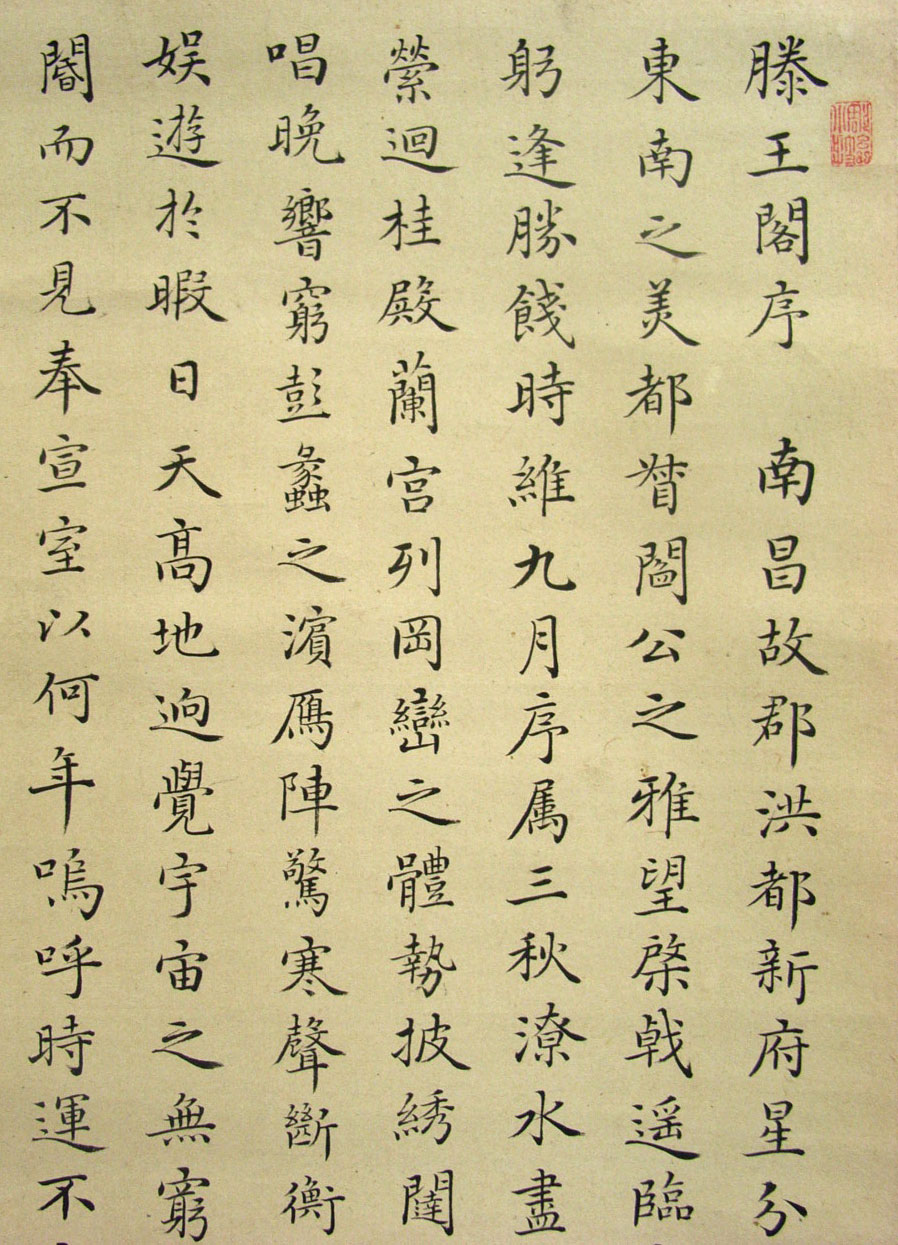 滕王閣序　南昌故郡洪都新府星分
東南之美都督閻公之雅望棨戟遥臨
躬逢勝餞時維九月序属三秋潦水盡
縈迴桂殿蘭宫列岡巒之體勢披綉闥
唱晚響窮彭蠡之濱鴈陣驚寒聲斷衡
娱遊於暇日天髙地逈覺宇宙之無窮
閽而不見奉宣室以何年嗚呼時運不